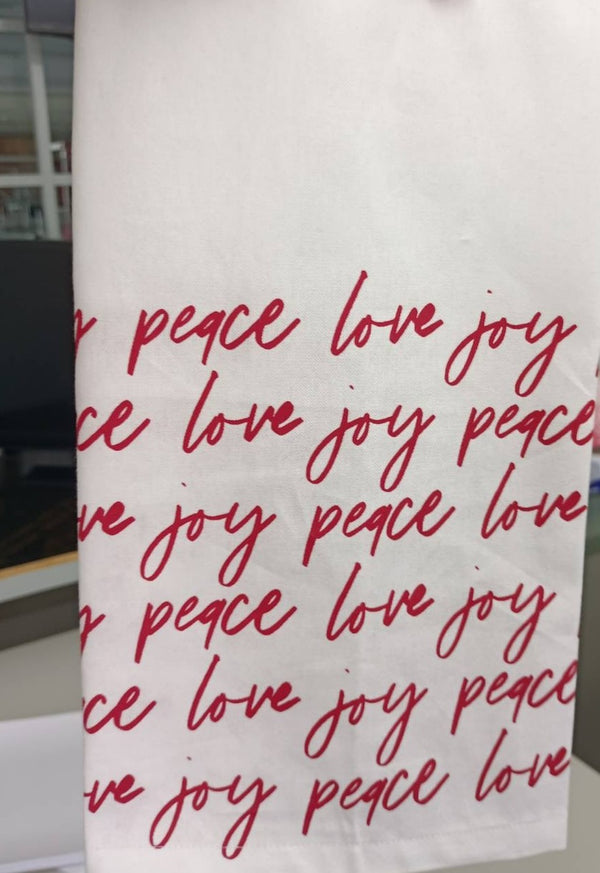 y peace love joy
ce love joy peace
ve joy peace love
y peace love joy
ce love joy peace
ve joy peace love